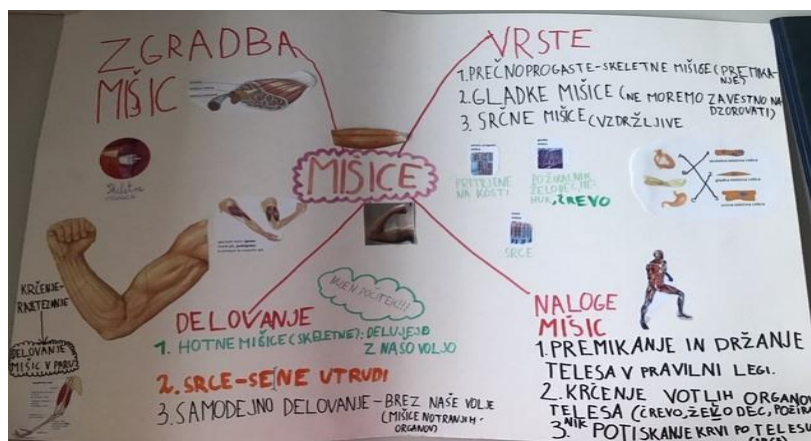 ZGRADBA
MIŠIC
VRSTE
1. PREČNOPROGASTE-SKELETNE MIŠICE (PREMIKA-
NJE)
2. GLADKE MIŠICE (NE MOREMO ZAVESTNO NA-
DZOROVATI)
3. SRČNE MIŠICE (VZDRŽLJIVE
MIŠICE
Skeletna
PRITRJENE
NA KOSTI
POŽIRALNIK,
ŽELODEC, ME-
HUR, ČREVO
SRCE
KRČENJE-
RAZTEZANJE
DELOVANJE
MIŠIC V PARU
DELOVANJE
1. HOTNE MIŠICE (SKELETNE): DELUJEJO
Z NAŠO VOLJO
2. SRCE-SE NE UTRUDI
3. SAMODEJNO DELOVANJE - BREZ NAŠE VOLJE
(MIŠICE NOTRANJIH
ORGANOV)
POČITEK!!!
NALOGE
MIŠIC
1. PREMIKANJE IN DRŽANJE
TELESA V PRAVILNI LEGI.
2. KRČENJE VOTLIH ORGANOV
TELESA (ČREVO, ŽELODEC, POŽIRAL
NIK
3. POTISKANJE KRVI PO TELESU